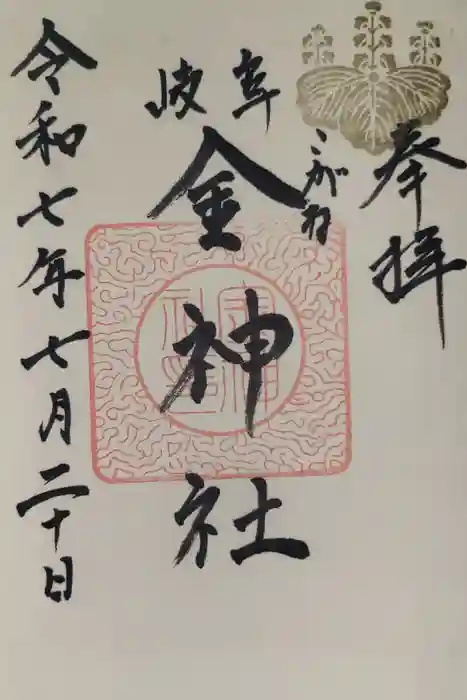 奉拝
岐阜
こがね
金神社
令和七年七月二十日